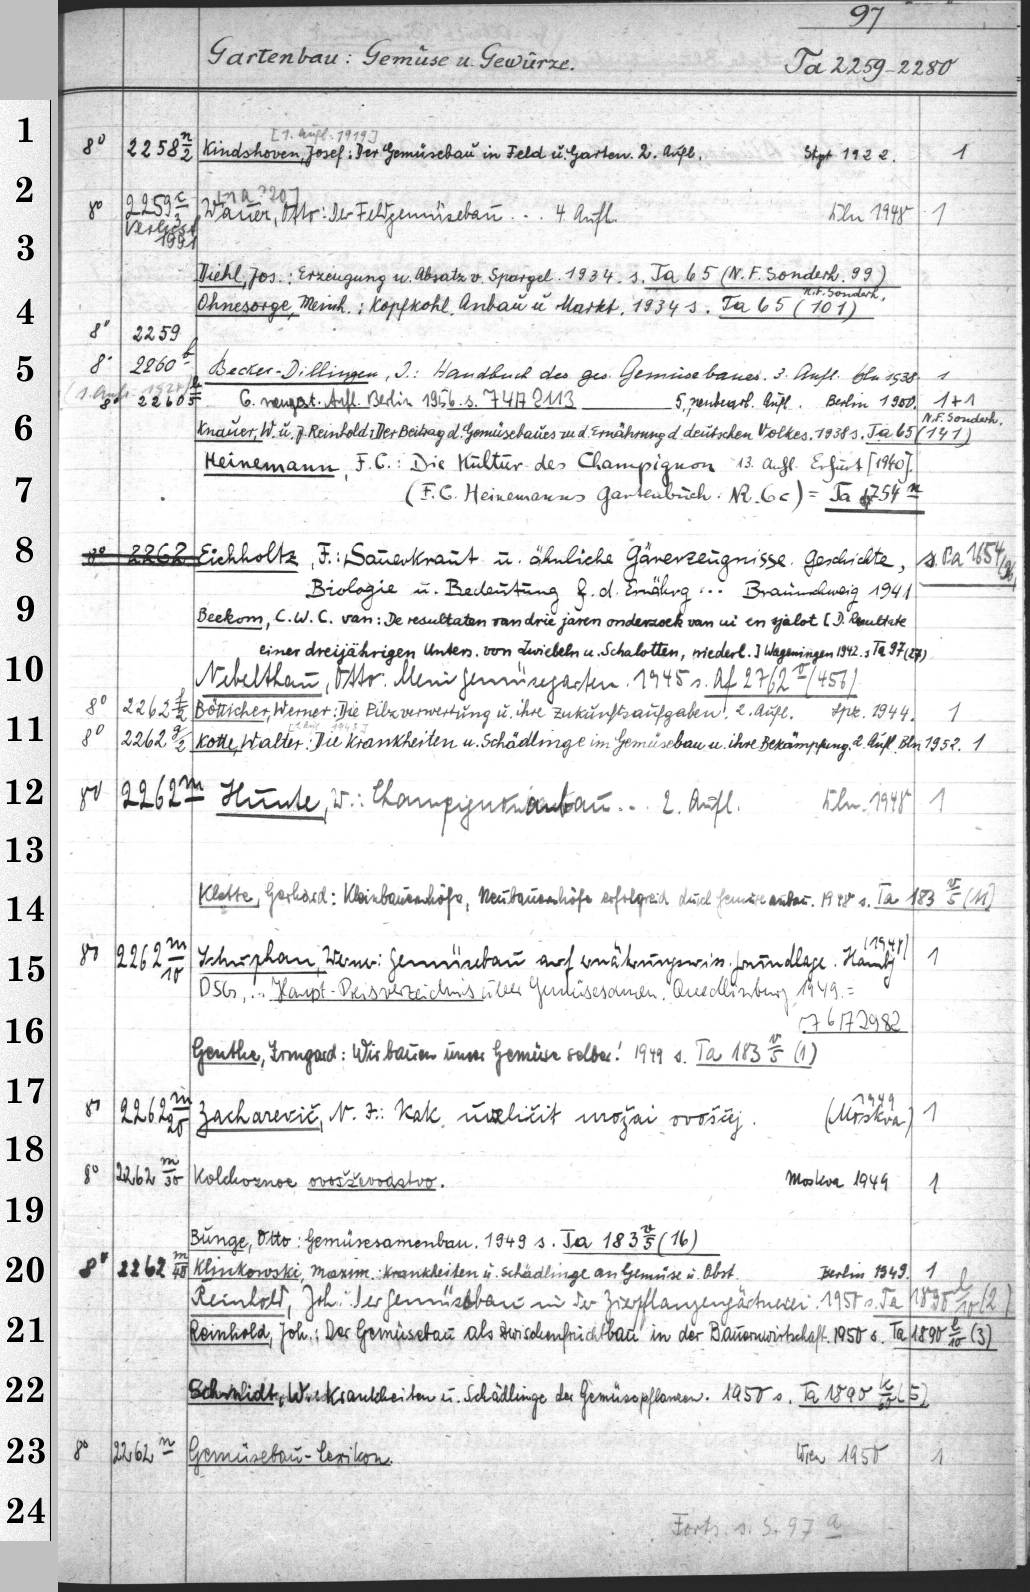 97
Gartenbau: Gemüse u. Gewürze. Ta 2259-2280
1
[1. Aufl. 1919]
8° 2258 n/2 Kindshoven, Josef: Der Gemüsebau in Feld u. Garten. 2. Aufl. Stgt 1922. 1
2
8° 2259 c/3 Wauer, Otto: Der Feldgemüsebau ... 4. Aufl. Bln 1948 1
Verlust
1991
3
Diehl, Jos.: Erzeugung u. Absatz v. Spargel. 1934. s. Ta 65 (N.F. Sonderh. 99)
N.F. Sonderh.
4
Ohnesorge, Meinh.: Kopfkohl. Anbau u. Markt. 1934 s. Ta 65 (101)
8° 2259
5
8° 2260 b Becker-Dillingen, J.: Handbuch des ges. Gemüsebaues. 3. Aufl. Bln 1938. 1
8° 2260 6. neugest. Aufl. Berlin 1956. s. 74A2113 5, neubearb. Aufl. Berlin 1950. 1+1
N.F. Sonderh.
6
Knauer, W. u. J. Reinhold: Der Beitrag d. Gemüsebaues zu d. Ernährung d. deutschen Volkes. 1938 s. Ta 65 (141)
Heinemann, F.C.: Die Kultur des Champignon 13. Aufl. Erfurt [1940].
7
(F.C. Heinemanns Gartenbuch. NR. 6c) = Ta 1754 n
8
8° 2262 Eichholtz, F.: Sauerkraut u. ähnliche Gärerzeugnisse. Geschichte, s. Pa 1654/
Biologie u. Bedeutung f. d. Ernährg ... Braunschweig 1941
9
Beekom, C.W.C. van: De resultaten van drie jaren onderzoek van ui en sjalot [D. Resultate
einer dreijährigen Unters. von Zwiebeln u. Schalotten, niederl.] Wageningen 1942. s Ta 97 (27)
10
Nebelthau, Otto: Mein Gemüsegarten. 1945 s. Af 2762 v (456)
8° 2262 f/2 Bötticher, Werner: Die Pilzverwertung u. ihre Zukunftsaufgaben. 2. Aufl. Lpz. 1944. 1
11
8° 2262 g/2 Kotte, Walter: Die Krankheiten u. Schädlinge im Gemüsebau u. ihre Bekämpfung. 2. Aufl. Bln 1952. 1
12
8° 2262 m Hunte, W.: Champignonanbau ... 2. Aufl. Bln. 1948 1
13
14
Klette, Gerhard: Kleinbauernhöfe, Neubauernhöfe erfolgreich durch Gemüseanbau. 1948 s. Ta 183 v/5 (11)
15
8° 2262 m/10 Schuphan, Werner: Gemüsebau auf ernährungswiss. Grundlage. Hambg (1948) 1
DSG, ... Haupt-Preisverzeichnis über Gemüsesamen. Quedlinburg 1949. =
16
76A2982
Genthe, Irmgard: Wir bauen unser Gemüse selber! 1949 s. Ta 183 v/5 (1)
17
8° 2262 m/20 Zacharevič, N. F.: Kak uveličit urožai ovoščej. (Moskva) 1949 1
18
8° 2262 m/30 Kolchoznoe ovoščevodstvo. Moskva 1949 1
19
Bunge, Otto: Gemüsesamenbau. 1949 s. Ta 183 v/5 (16)
20
8° 2262 m/40 Klinkowski, Maxim.: Krankheiten u. Schädlinge an Gemüse u. Obst. Berlin 1949. 1
Reinhold, Joh.: Der Gemüsebau in der Zierpflanzengärtnerei. 1950 s. Ta 1890 l/10 (2)
21
Reinhold, Joh.: Der Gemüsebau als Zwischenfruchtbau in der Bauernwirtschaft. 1950 s. Ta 1890 l/10 (3)
22
Schmidt, W.: Krankheiten u. Schädlinge der Gemüsepflanzen. 1950 s. Ta 1890 (5)
23
8° 2262 n Gemüsebau-Lexikon. Wien 1950 1
24
Forts. s. S. 97 a